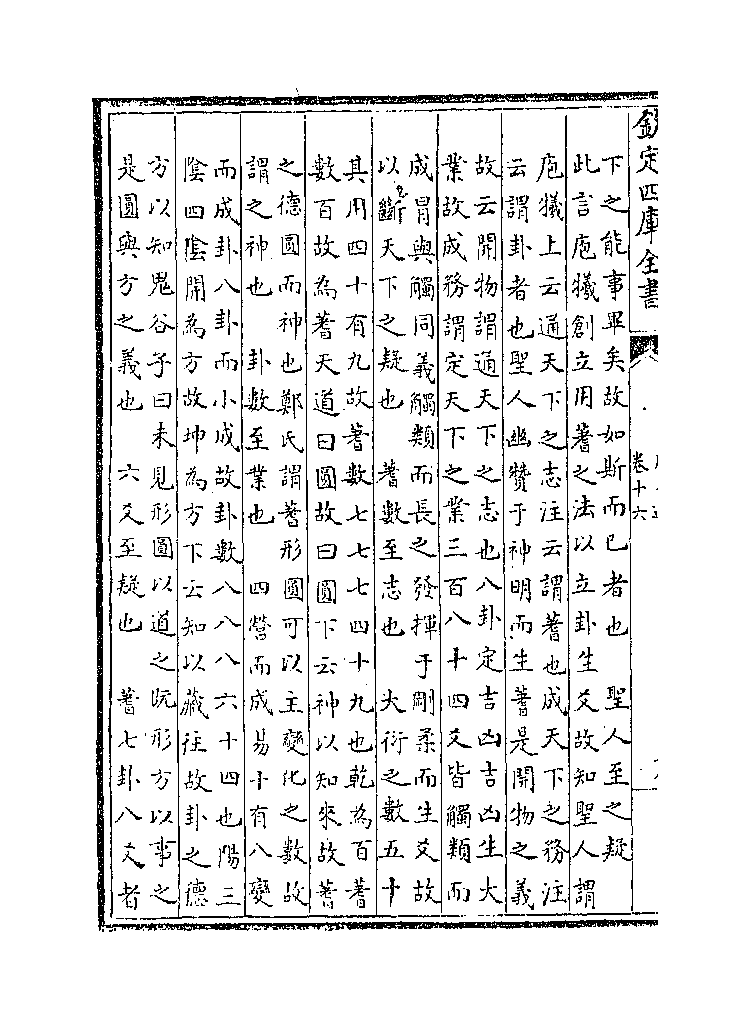 欽定四庫全書
卷十六
下之能事畢矣故如斯而已者也　聖人至之疑
此言庖犧創立用蓍之法以立卦生爻故知聖人謂
庖犧上云通天下之志注云謂蓍也成天下之務注
云謂卦者也聖人幽贊于神明而生蓍是開物之義
故云開物謂通天下之志也八卦定吉凶吉凶生大
業故成務謂定天下之業三百八十四爻皆觸類而
成冒與觸同義觸類而長之發揮于剛柔而生爻故
以斷天下之疑也　蓍數至志也　大衍之數五十
其用四十有九故蓍數七七七四十九也乾為百蓍
數百故為蓍天道曰圓故曰圓下云神以知來故蓍
之德圓而神也鄭氏謂蓍形圓可以主變化之數故
謂之神也　卦數至業也　四營而成易十有八變
而成卦八卦而小成故卦數八八八六十四也陽三
陰四陰開為方故坤為方下云知以藏往故卦之德
方以知鬼谷子曰未見形圓以道之既形方以事之
是圓與方之義也　六爻至疑也　蓍七卦八爻者